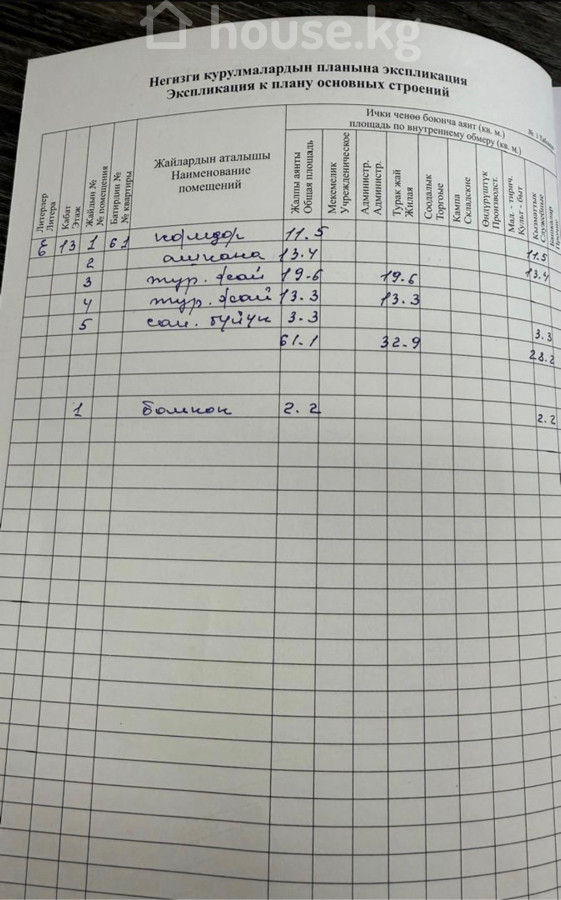 house.kg
Негизги курулмалардын планына экспликация
Экспликация к плану основных строений
Литерлер
Литера
Кабат
Этаж
Жайдын №
№ помещения
Батирдин №
№ квартиры
Жайлардын аталышы
Наименование
помещений
Ички ченөө боюнча аянт (кв. м.)
площадь по внутреннему обмеру (кв. м.)
Жалпы аянты
Общая площадь
Мекемелик
Учрежденическое
Администр.
Администр.
Турак жай
Жилая
Соодалык
Торговые
Кампа
Складские
Өндүрүштүк
Производст.
Мад. - тирич.
Культ - быт
Кызматтык
Служебные
Башкалар
Прочие
Е 13 1 61 коридор 11.5 11.5
2 ашкана 13.4 13.4
3 тур. жай 19.6 19.6
4 тур. жай 13.3 13.3
5 сан. түйүн 3.3 3.3
61.1 32.9 28.2
1 балкон 2.2 2.2